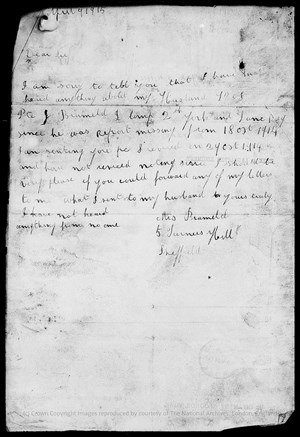 July 9 1915
Dear Sir
I am sory to tell you that I have not
heard anything about my Husband No
Pte J Brameld I Comp 2nd York and Lanc Reg
since he was report missing from 18 Oct 1914
I am senting you pc I served in 29 Oct 1914
and have not reseved noting since I shold
if you could forward any of my letters
to me what I sent to my husband
yours truly
I have not heard
anything from no one
Mrs Brameld
5 Furness Hill
Sheffield
(c) Crown Copyright Images reproduced by courtesy of The National Archives, London, England